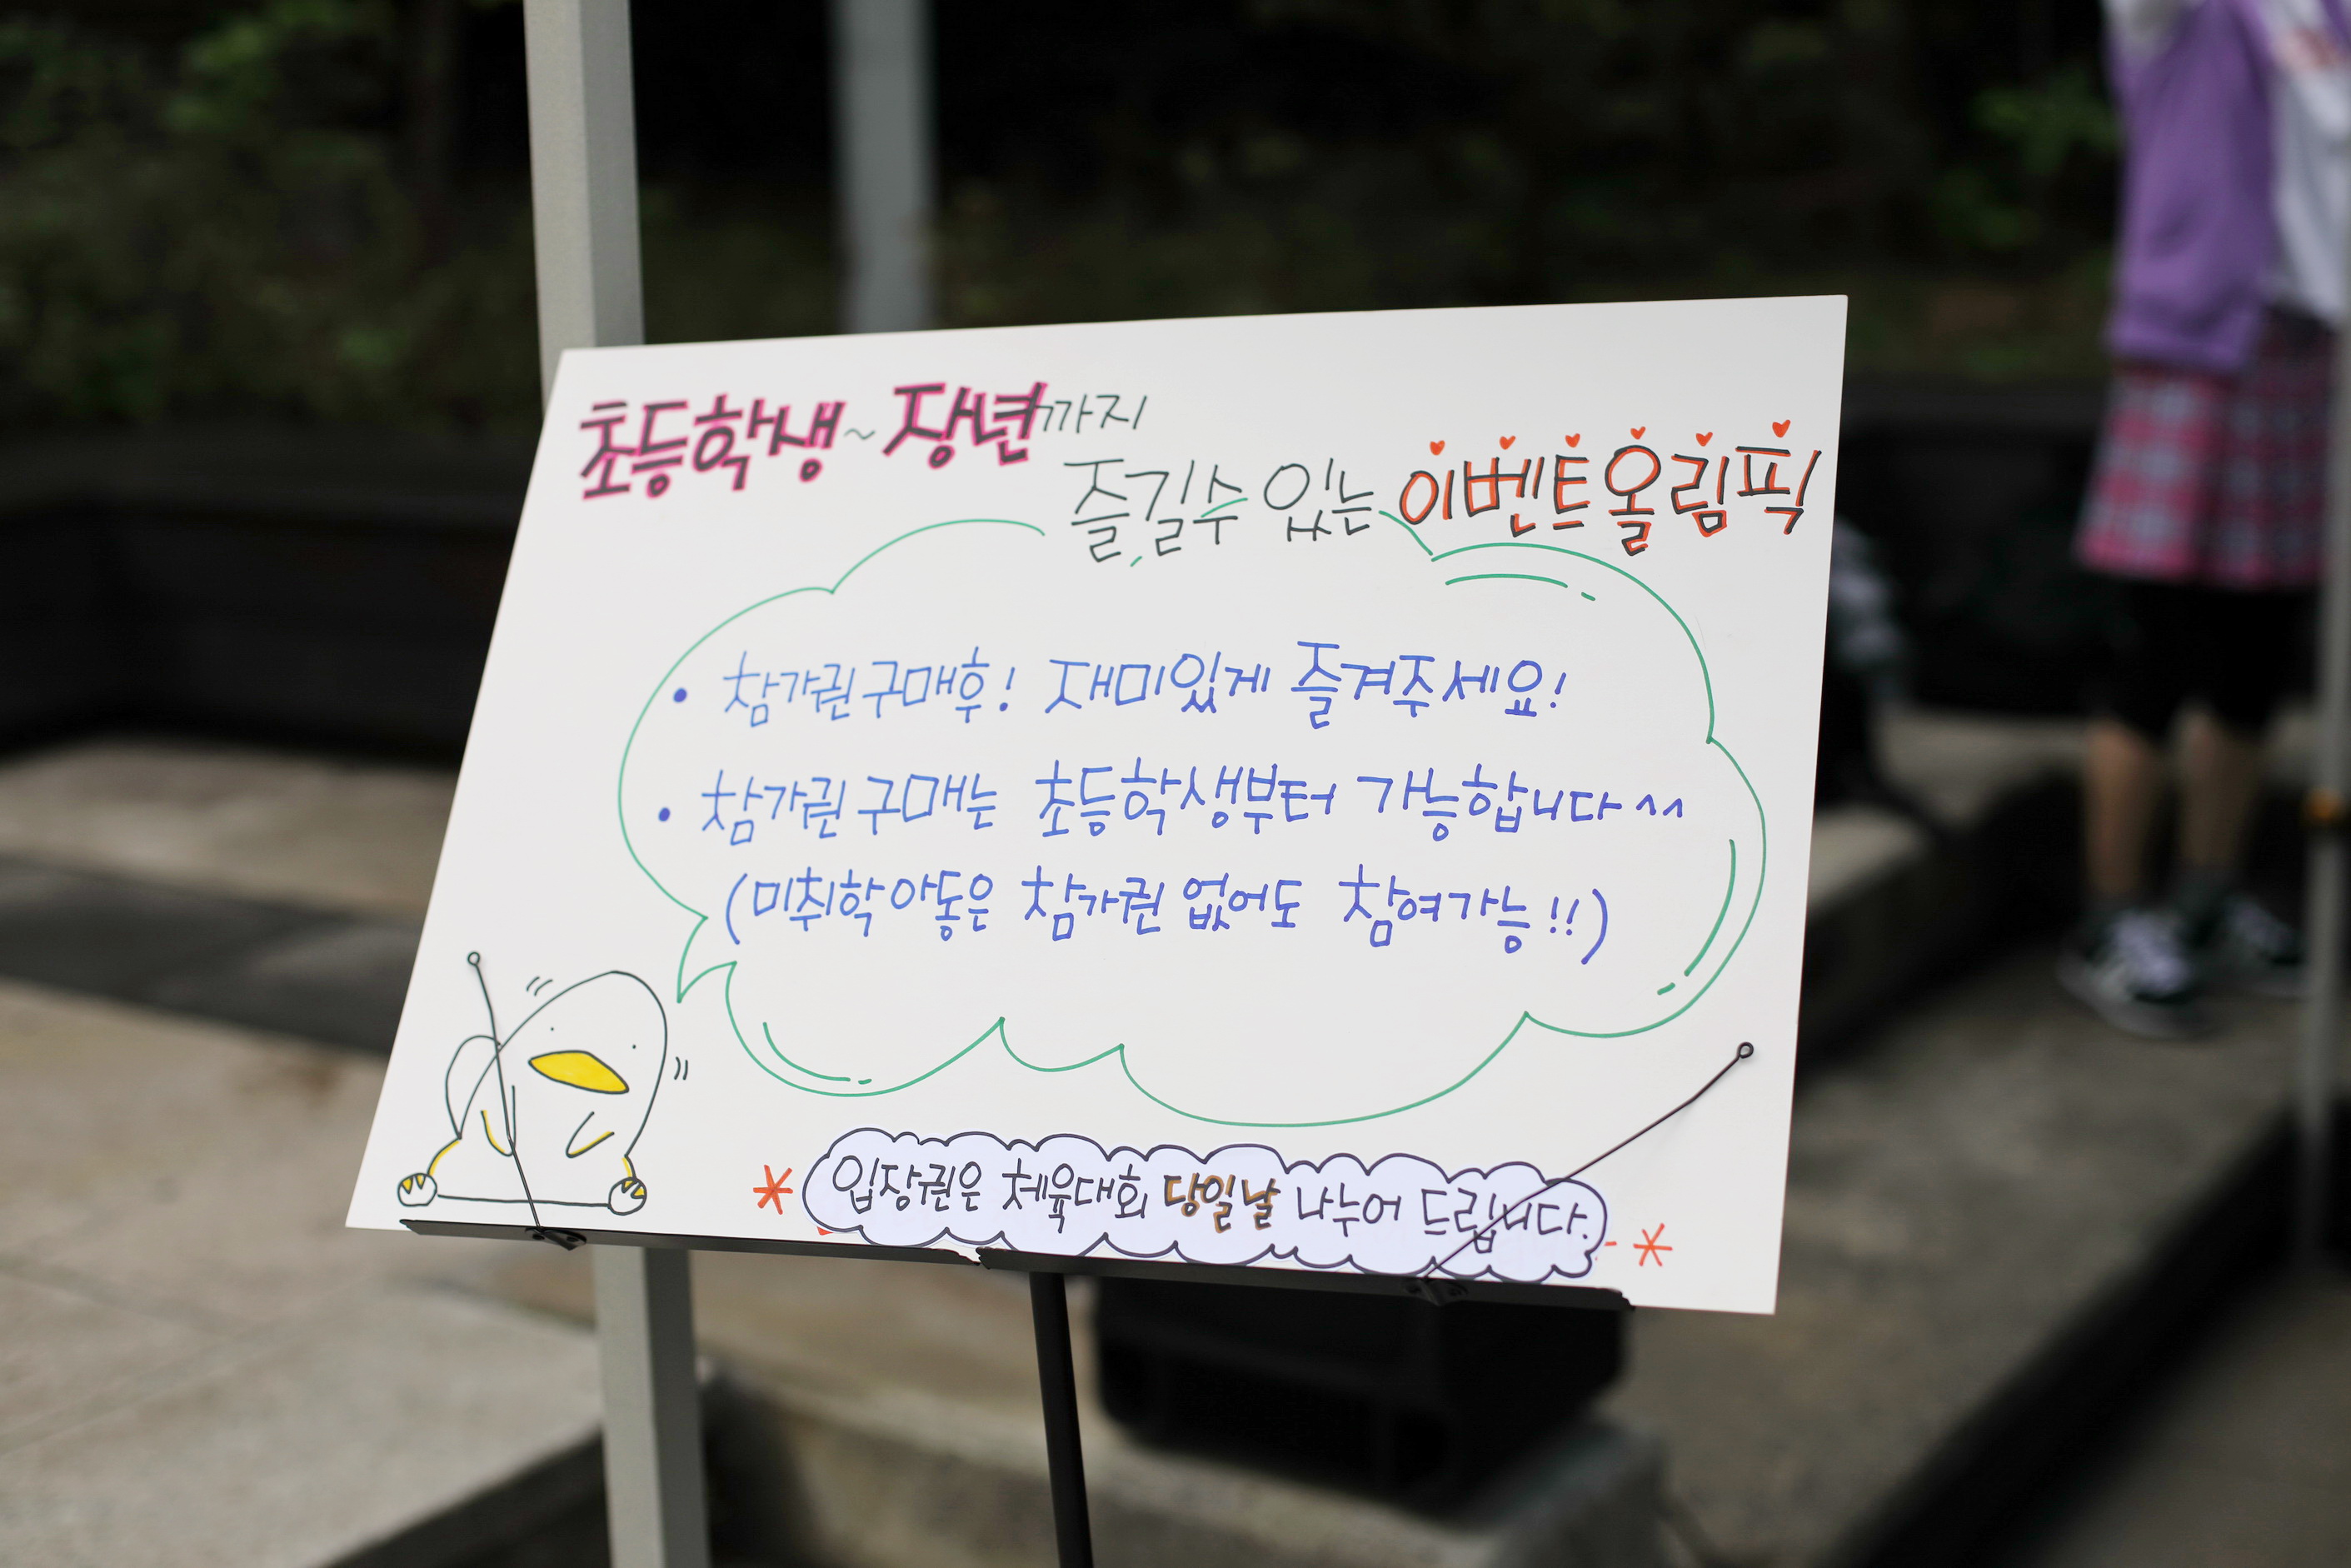 초등학생~장년까지
즐길수 있는 이벤트올림픽
• 참가권 구매후! 재미있게 즐겨주세요!
• 참가권 구매는 초등학생부터 가능합니다^^
(미취학 아동은 참가권 없어도 참여가능!!)
* 입장권은 체육대회 당일날 나누어 드립니다. *